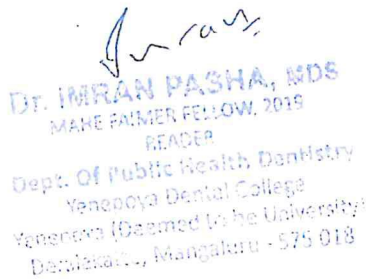 Imran
Dr. IMRAN PASHA, MDS
MAHE FAIMER FELLOW, 2019
READER
Dept. Of Public Health Dentistry
Yenepoya Dental College
Yenepoya (Deemed to be University)
Deralakatte, Mangaluru - 575 018